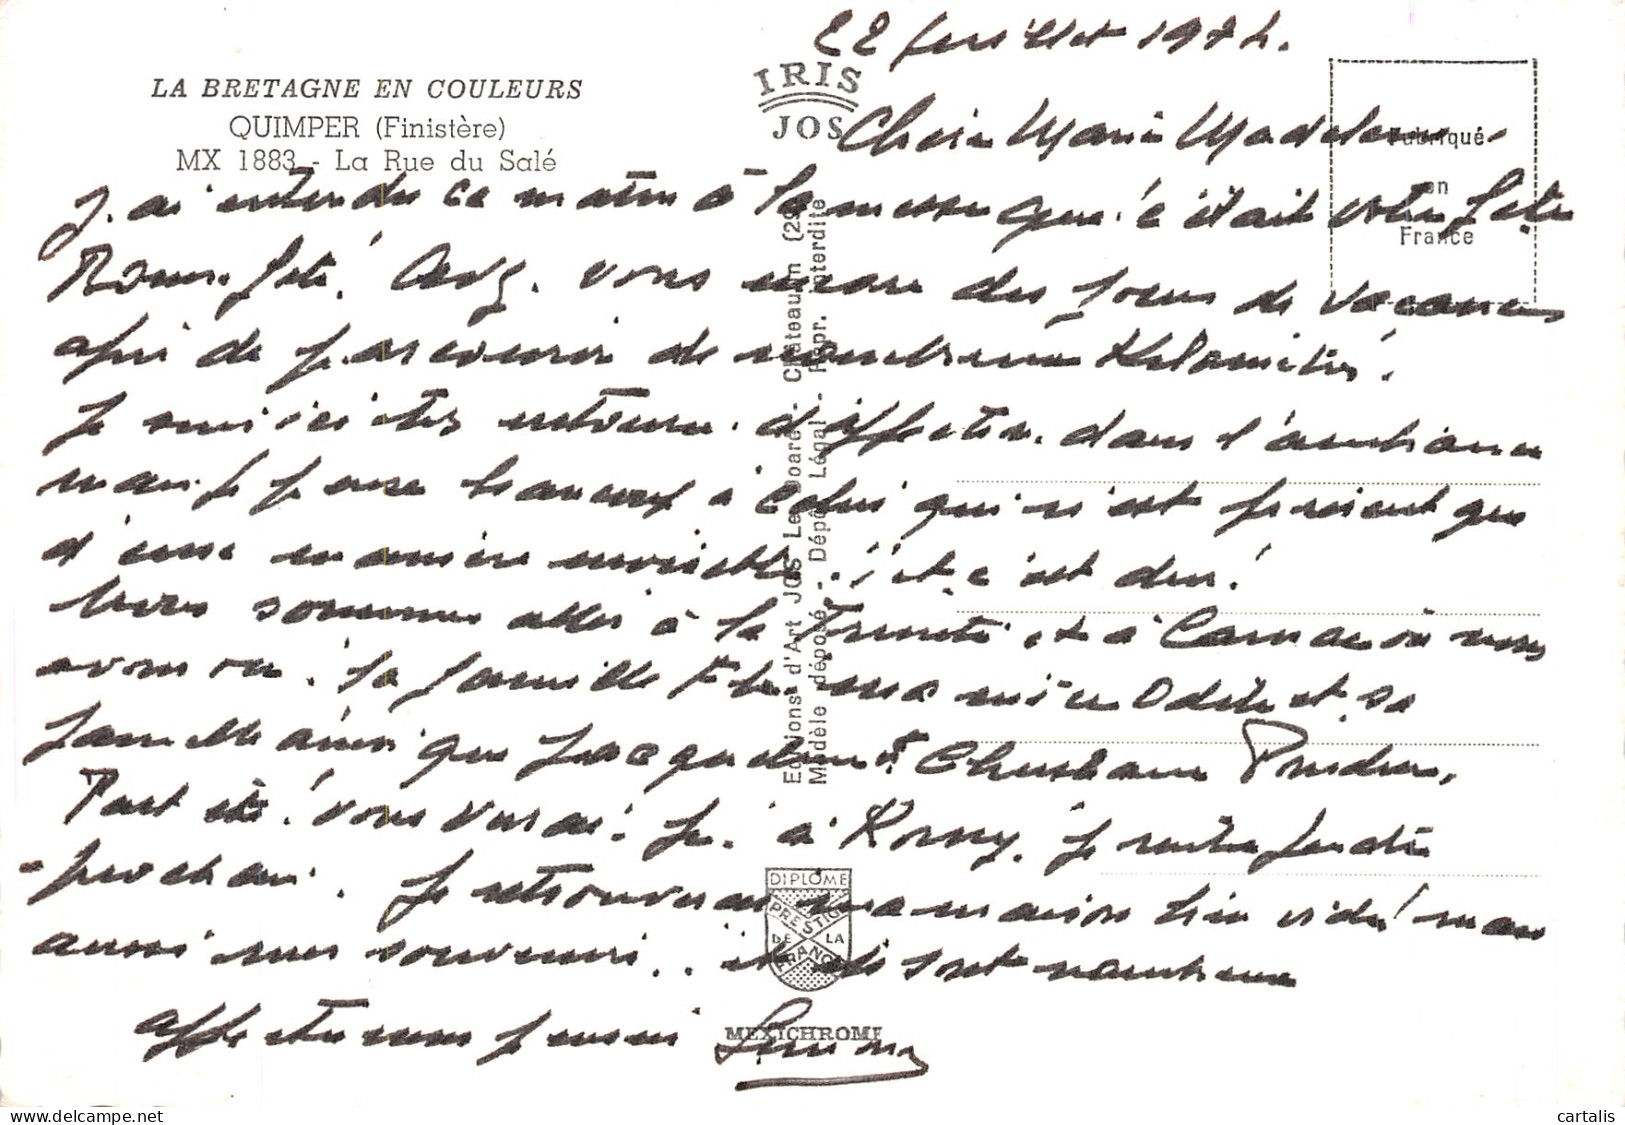 22 juillet 1974.
LA BRETAGNE EN COULEURS
QUIMPER (Finistère)
MX 1883 - La Rue du Salé
IRIS
JOS
Fabriqué
en
France
Chère Marie Madeleine,
J'ai entendu ce matin à la messe que c'était votre fête
Bonne fête! Avez-vous encore des jours de vacances
afin de parcourir de nombreux kilomètres.
Je suis ici très entourée d'affection dans l'ambiance
mais je pense beaucoup à celui qui n'est présent que
d'une manière invisible.. et c'est dur!
Nous sommes allés à la Trinité et à Carnac où nous
avons vu la famille ma nièce Odile et sa
famille ainsi que Jacqueline et Christiane
Peut être vous verrai-je à Rosny. Je rentre jeudi
prochain. Je retrouverai ma maison bien vide! mais
aussi mes souvenirs.. et ils sont nombreux
affectueuses pensées Simone
Editions d'Art JOS Le Doaré - Châteaulin (29
Modèle déposé - Dépôt Légal - Repr. interdite
DIPLÔME
PRESTIGE
DE LA
FRANCE
MEXICHROME
cartalis